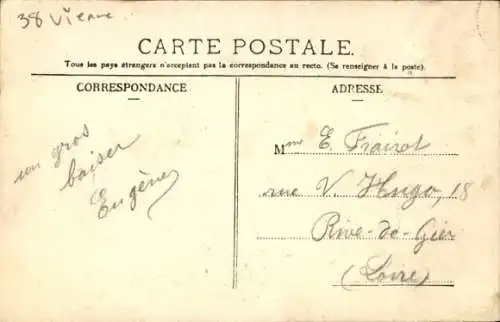 38 Vienne
CARTE POSTALE.
Tous les pays étrangers n'acceptent pas la correspondance au recto. (Se renseigner à la poste).
CORRESPONDANCE
ADRESSE
un gros
baiser
Eugène
Mme E. Fraisot
rue V. Hugo, 18
Rive-de-Gier
(Loire)